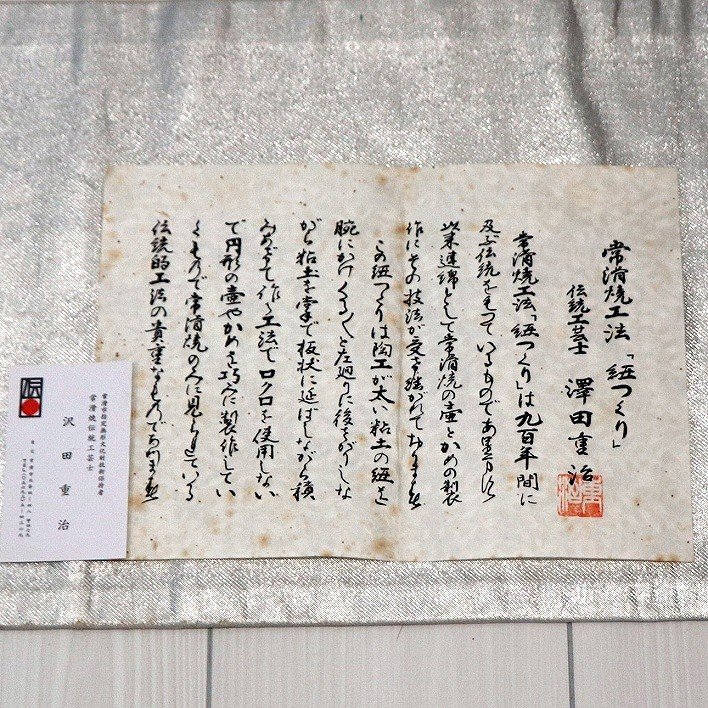 常滑焼工法「紐つくり」
伝統工芸士 澤田重治
常滑焼工法「紐つくり」は九百年間に
及ぶ伝統をもっているものであります
以来連綿として常滑焼の壷とかめの製
作にその技法が受け継がれております
この紐つくりは陶工が太い粘土の紐を
腕にかけくるくると左廻りに後ずさりしな
がら粘土を掌で板状に延ばしながら積
みあげて作る工法でロクロを使用しない
で円形の壷やかめを巧みに製作してい
くもので常滑焼のみに見られている
伝統的工法の貴重なものであります
伝
常滑市指定無形文化財技術保持者
常滑焼伝統工芸士
沢田重治